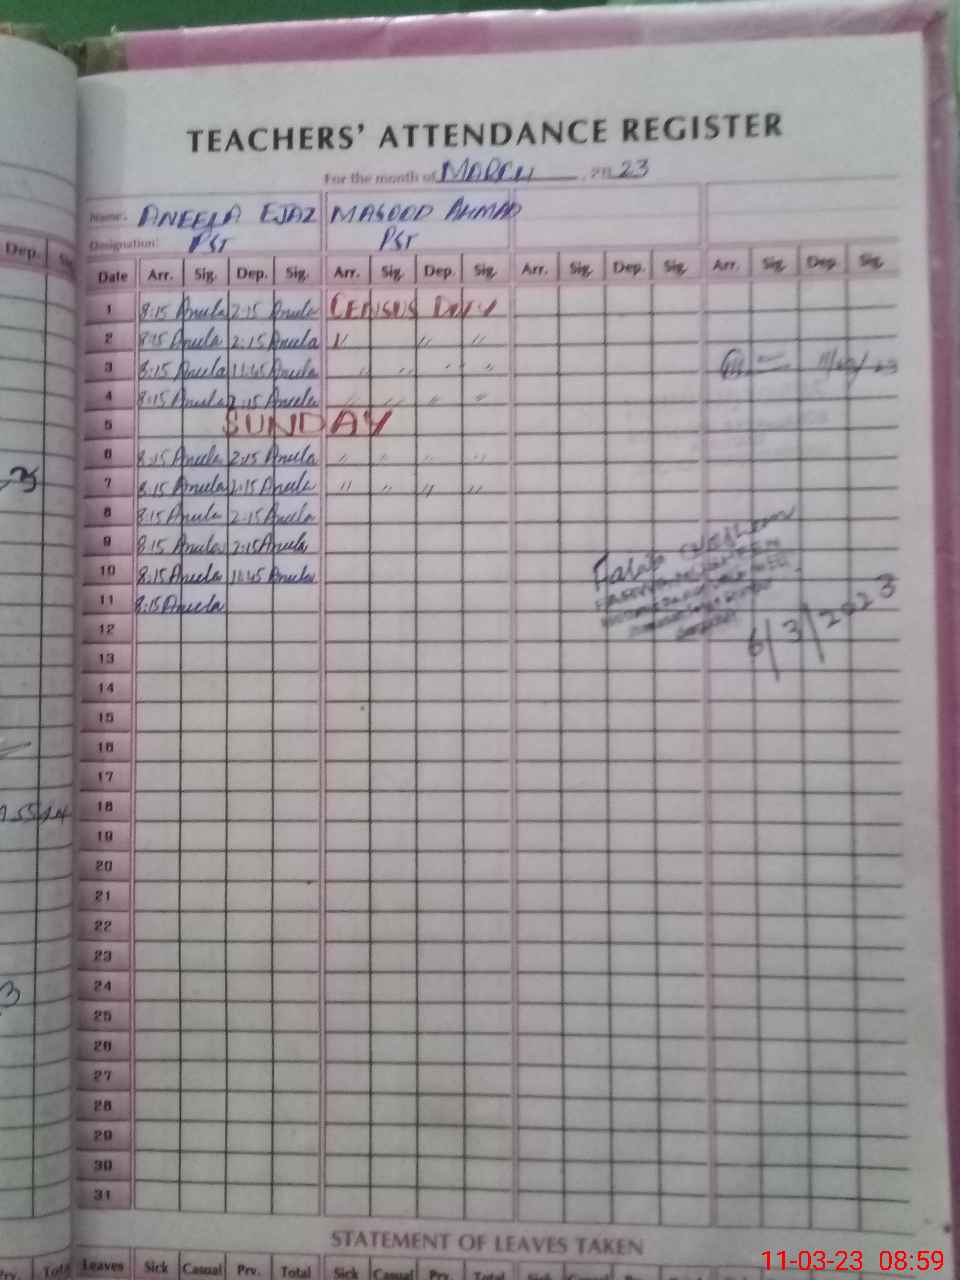 TEACHERS' ATTENDANCE REGISTER
For the month of MARCH 2023
Name: ANEELA EJAZ MASOOD AHMAD
Designation: PST PST
Dep. Date Arr. Sig. Dep. Sig. Arr. Sig. Dep. Sig. Arr. Sig. Dep. Sig. Arr. Sig. Dep. Sig.
1 8:15 Aneela 2:15 Aneela CENSUS DUTY
2 8:15 Aneela 2:15 Aneela " " "
3 8:15 Aneela 11:45 Aneela " " " " 11/03/23
4 8:15 Aneela 2:15 Aneela " " " "
5 SUNDAY
6 8:15 Aneela 2:15 Aneela " " " "
7 8:15 Aneela 2:15 Aneela " " " "
8 8:15 Aneela 2:15 Aneela
9 8:15 Aneela 2:15 Aneela
10 8:15 Aneela 11:45 Aneela
11 8:15 Aneela
6/3/2023
12
13
14
15
16
17
18
19
20
21
22
23
24
25
26
27
28
29
30
31
STATEMENT OF LEAVES TAKEN
Leaves Sick Casual Prv. Total Sick Casual Prv. Total Sick Casual
11-03-23 08:59